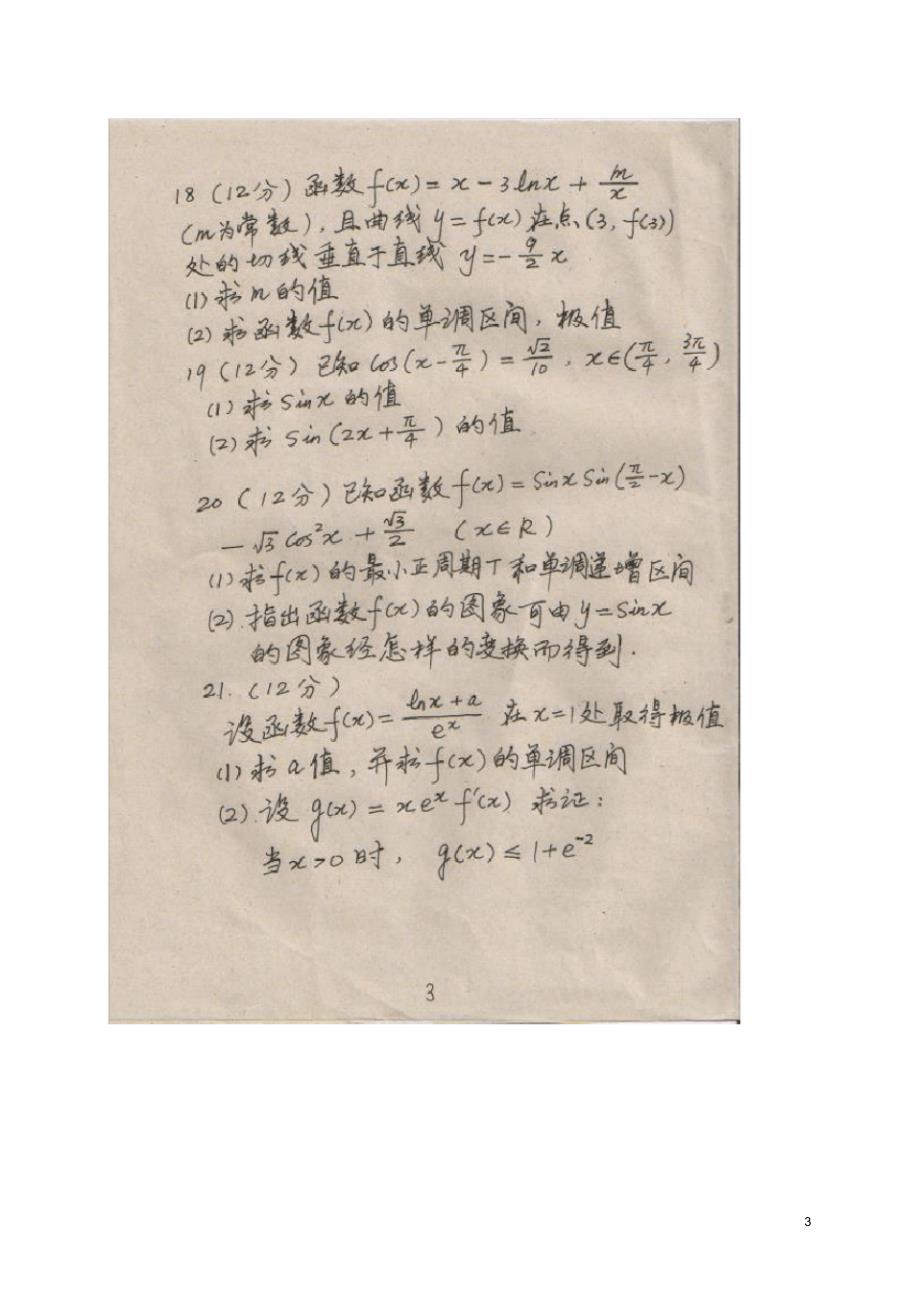 18 (12分) 函数 f(x) = x - 3lnx + m/x
(m为常数), 且曲线 y = f(x) 在点 (3, f(3))
处的切线垂直于直线 y = - 9/2 x
(1) 求m的值
(2) 求函数f(x)的单调区间, 极值
19 (12分) 已知 Cos(x - π/4) = √2/10 , x∈(π/4 , 3π/4)
(1) 求Sinx的值
(2) 求Sin(2x + π/4)的值
20 (12分) 已知函数 f(x) = Sinx Sin(π/2 - x)
- √3 Cos²x + √3/2 (x∈R)
(1) 求f(x)的最小正周期T和单调递增区间
(2). 指出函数f(x)的图象可由y=Sinx
的图象经怎样的变换而得到.
21. (12分)
设函数f(x) = (lnx + a)/e^x 在x=1处取得极值
(1) 求a值, 并求f(x)的单调区间
(2). 设 g(x) = xe^x f'(x) 求证:
当x>0时, g(x) ≤ 1+e^-2
3
3